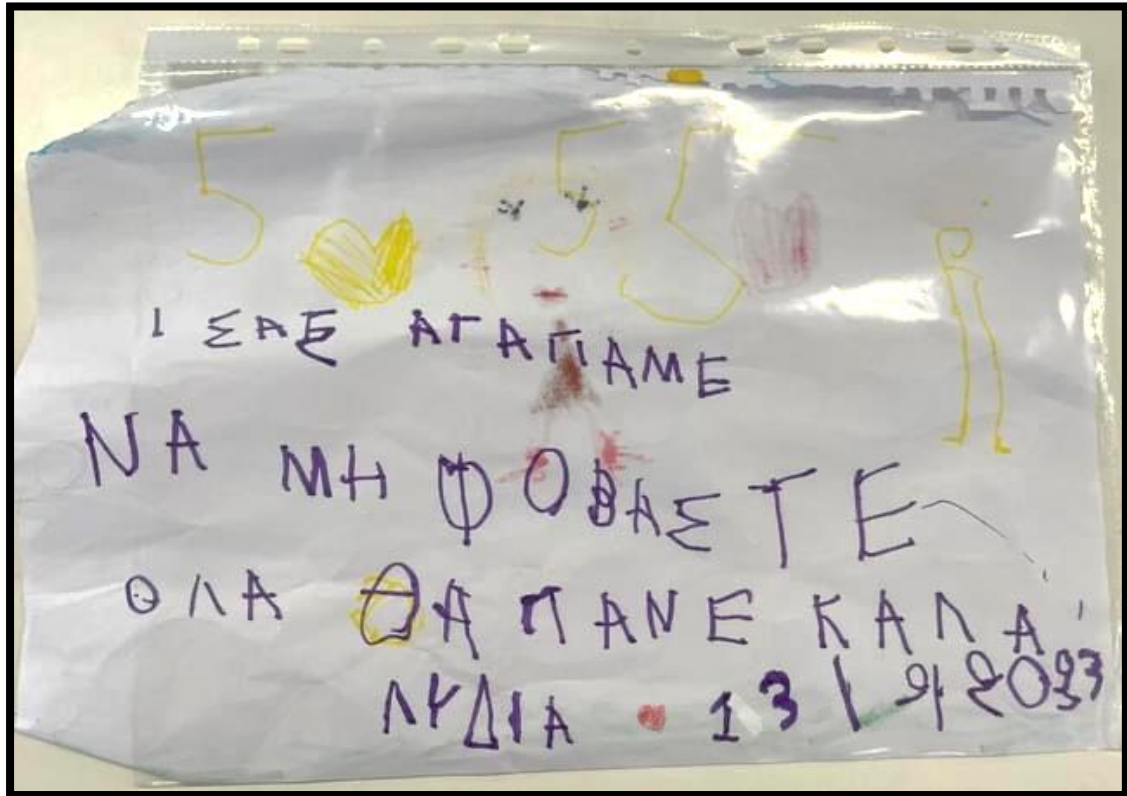 5 5 5
Ι ΣΑΣ ΑΓΑΠΑΜΕ
ΝΑ ΜΗ ΦΟΒΑΣΤΕ
ΟΛΑ ΘΑ ΠΑΝΕ ΚΑΛΑ
ΛΥΔΙΑ 13 | 9 | 2023